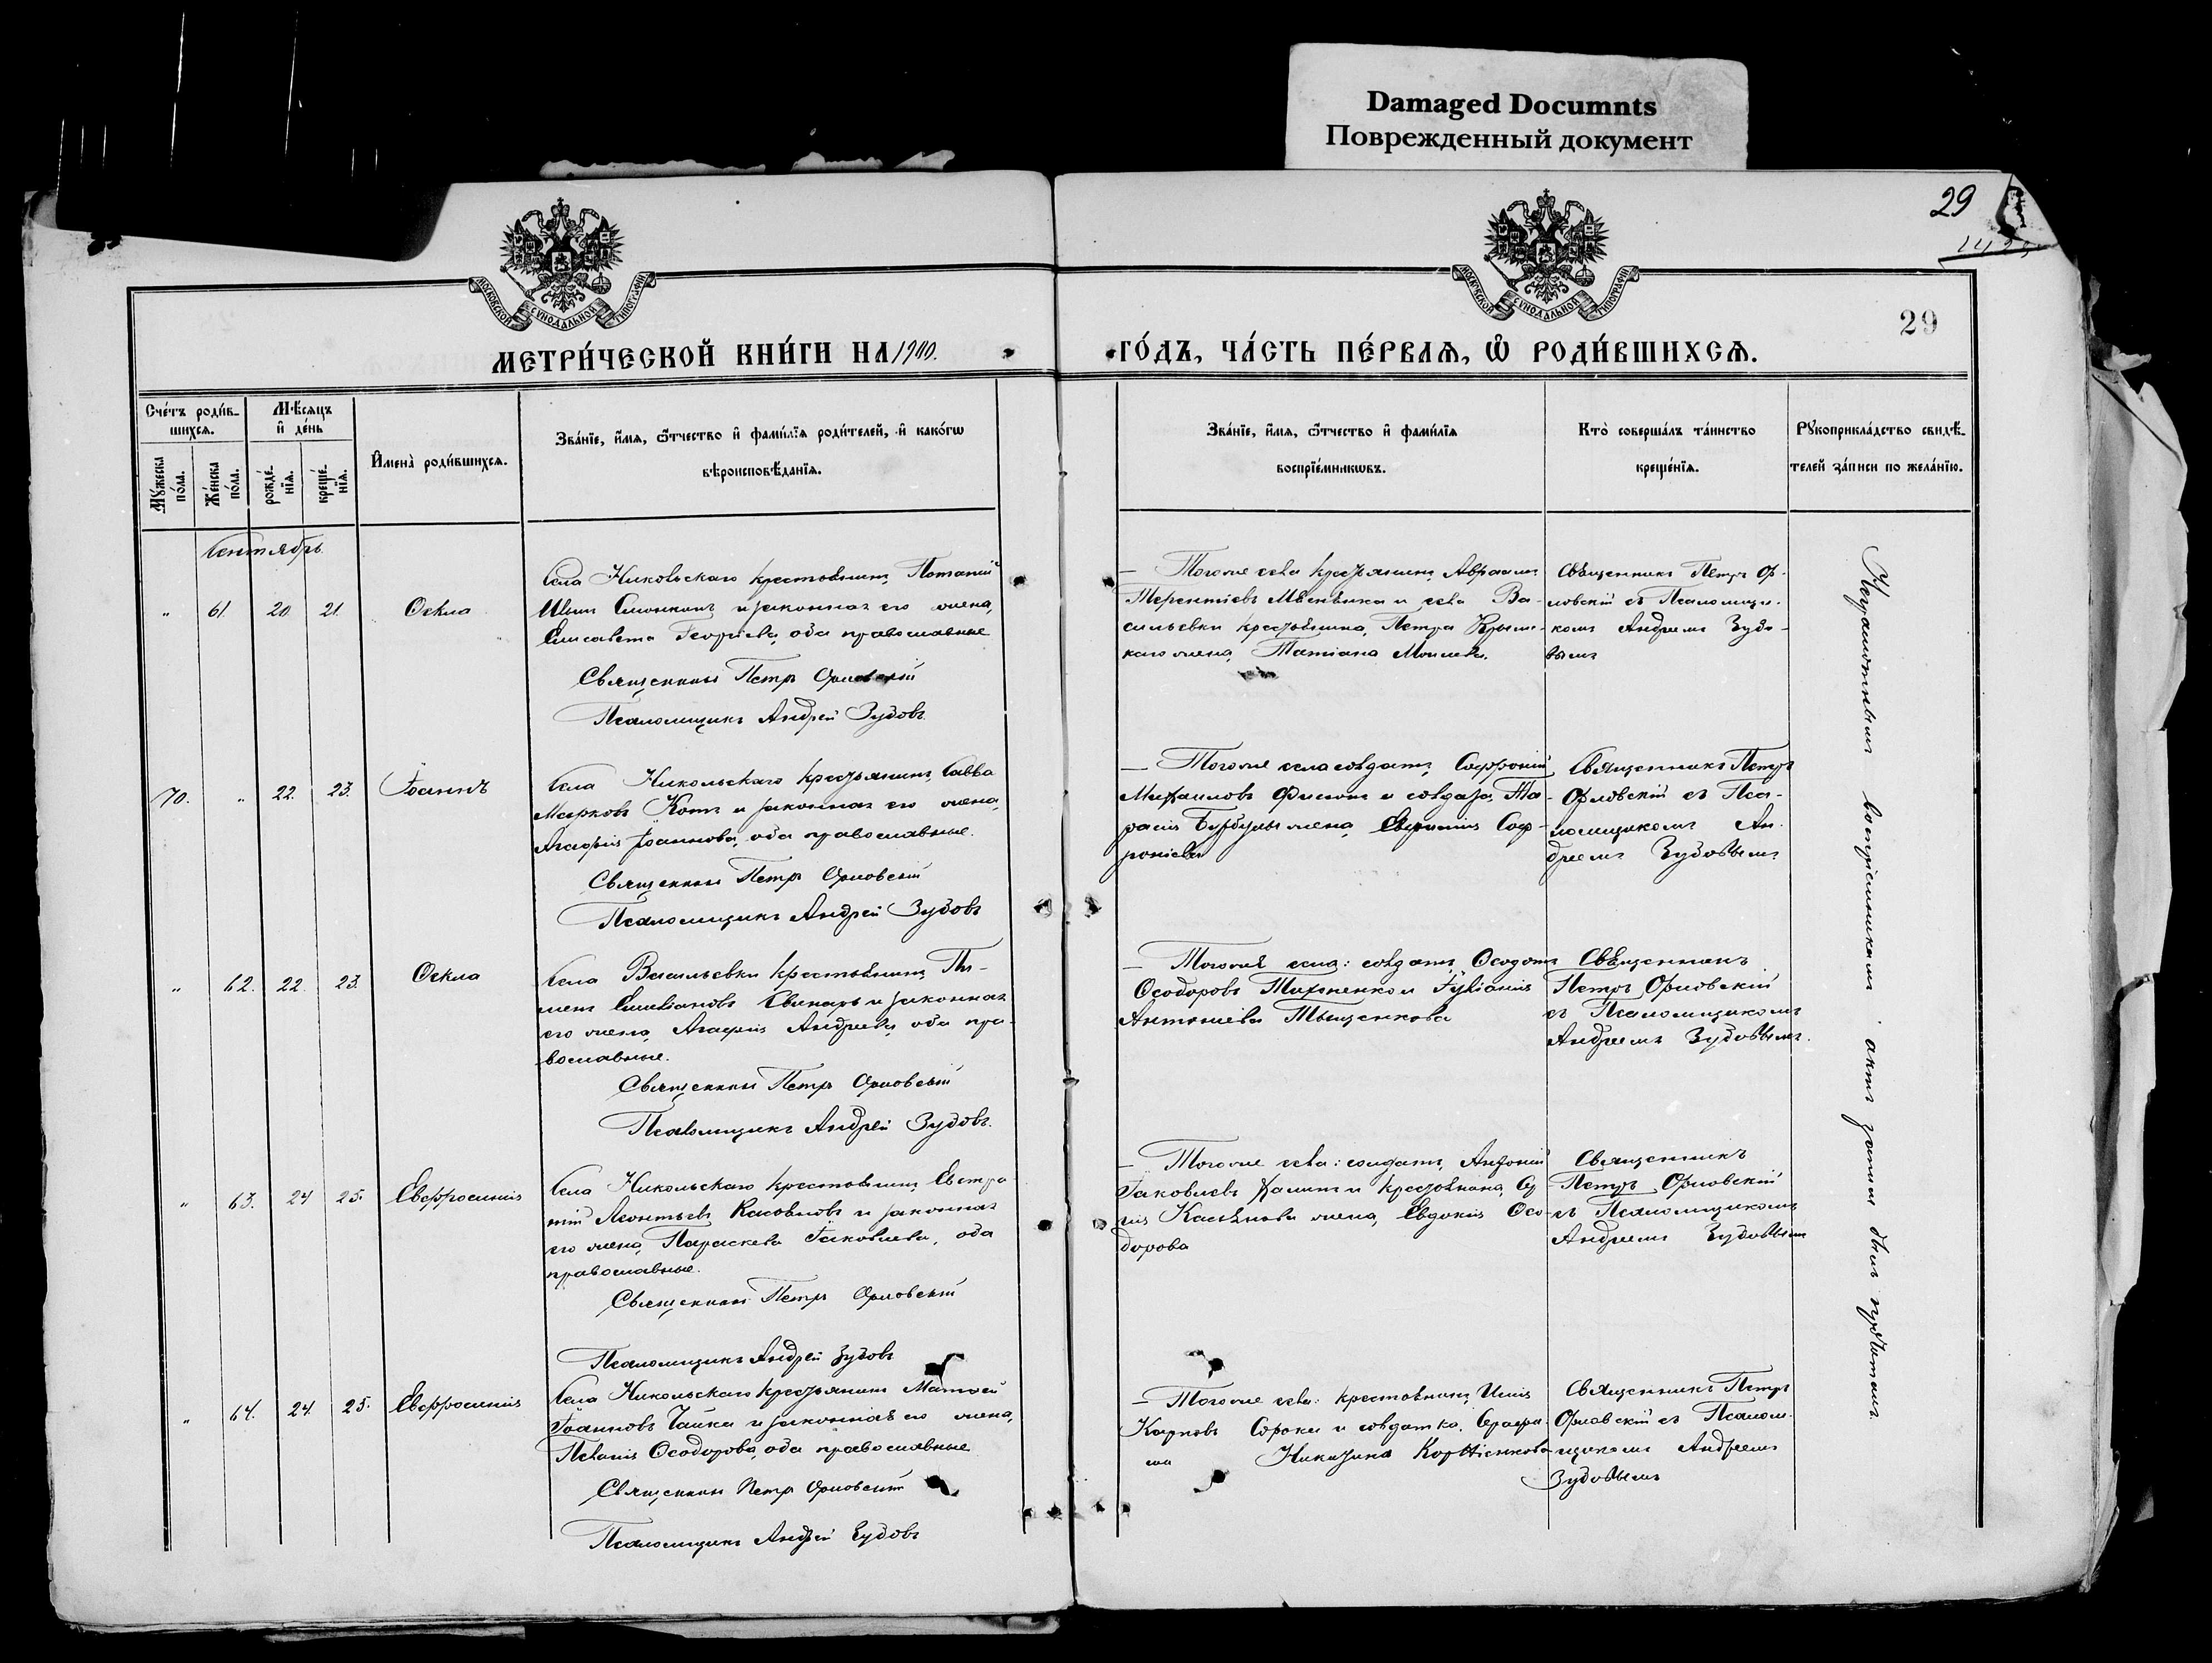 Damaged Documnts
Поврежденный документ
29
29
МОСКОВСКОЙ СѴНОДАЛЬНОЙ ТИПОГРАФІИ
МОСКОВСКОЙ СѴНОДАЛЬНОЙ ТИПОГРАФІИ
МЕТРИ́ЧЕСКОЙ КНИ́ГИ НА 1900.
ГО́ДЪ, ЧА́СТЬ ПЕ́РВАѦ, Ѡ҆ РОДИ́ВШИХСѦ.
Сче́тъ роди́в-
шихсѧ.
Мѣ́сѧцъ
и҆ де́нь
Мꙋ́жеска
по́ла.
Же́нска
по́ла.
рожде́-
нїѧ.
креще́-
нїѧ.
И҆мена̀ роди́вшихсѧ.
Зва́нїе, и҆́мѧ, ѻ҆́тчество и҆ фами́лїѧ роди́телей, и҆ како́гѡ
вѣроисповѣ́данїѧ.
Зва́нїе, и҆́мѧ, ѻ҆́тчество и҆ фами́лїѧ
воспрїе́мникѡвъ.
Кто̀ соверша́лъ та́инство
креще́нїѧ.
Рꙋкоприкла́дство свидѣ́-
телей за́писи по жела́нїю.
Сентябрь
" 61. 20. 21. Ѳекла
Села Никольскаго крестьянинъ Потапій
Ивановъ и законная его жена,
Елисавета Георгіева, оба православные
Священникъ Петръ Орловскій
Псаломщикъ Андрей Зубовъ.
— Тогоже села крестьянинъ Авраамъ
Терентіевъ и села Ва-
сильевки крестьянина, Петра
жена, Татіана
Священникъ Петръ Ор-
ловскій съ Псаломщи-
комъ Андреемъ Зубо-
вымъ
70. " 22. 23. Іоаннъ
Села Никольскаго крестьянинъ, Савва
Марковъ Котъ и законная его жена,
Агафія Іоаннова, оба православные.
Священникъ Петръ Орловскій
Псаломщикъ Андрей Зубовъ
— Тогоже села солдатъ, Софроній
Михаиловъ и солдата, Та-
расія жена, Евфимія Соф-
роніева
Священникъ Петръ
Орловскій съ Пса-
ломщикомъ Ан-
дреемъ Зубовымъ
" 62. 22. 23. Ѳекла
Села Васильевки крестьянинъ, Пи-
менъ Емеліановъ Свинарь и законная
его жена, Агафія Андреева, оба пра-
вославные.
Священникъ Петръ Орловскій
Псаломщикъ Андрей Зубовъ.
— Тогоже села: солдатъ, Ѳеодотъ
Ѳеодоровъ Тихоненко и Іуліанія
Антоніева Тыщенкова
Священникъ
Петръ Орловскій
съ Псаломщикомъ
Андреемъ Зубовымъ.
" 63. 24 25. Евфросинія
Села Никольскаго крестьянинъ, Евстра-
тій Леонтьевъ и законная
его жена, Параскева Іаковлева, оба
православные.
Священникъ Петръ Орловскій
Псаломщикъ Андрей Зубовъ
— Тогоже села: солдатъ,
Іаковлевъ и крестьянина,
жена, Евдокія Ѳео-
дорова
Священникъ
Петръ Орловскій
съ Псаломщикомъ
Андреемъ Зубовымъ
" 64. 24. 25. Евфросинія
Села Никольскаго крестьянинъ Матѳей
Іоанновъ Чайка и законная его жена,
Пелагія Ѳеодорова, оба православные
Священникъ Петръ Орловскій
Псаломщикъ Андрей Зубовъ
— Тогоже села: крестьянинъ, Илія
Карповъ Сорока и солдатка, Серафи-
ма Никитина Корніенкова
Священникъ Петръ
Орловскій съ Псалом-
щикомъ Андреемъ
Зубовымъ
Неграмотнымъ воспріемникамъ актъ записи былъ прочитанъ.